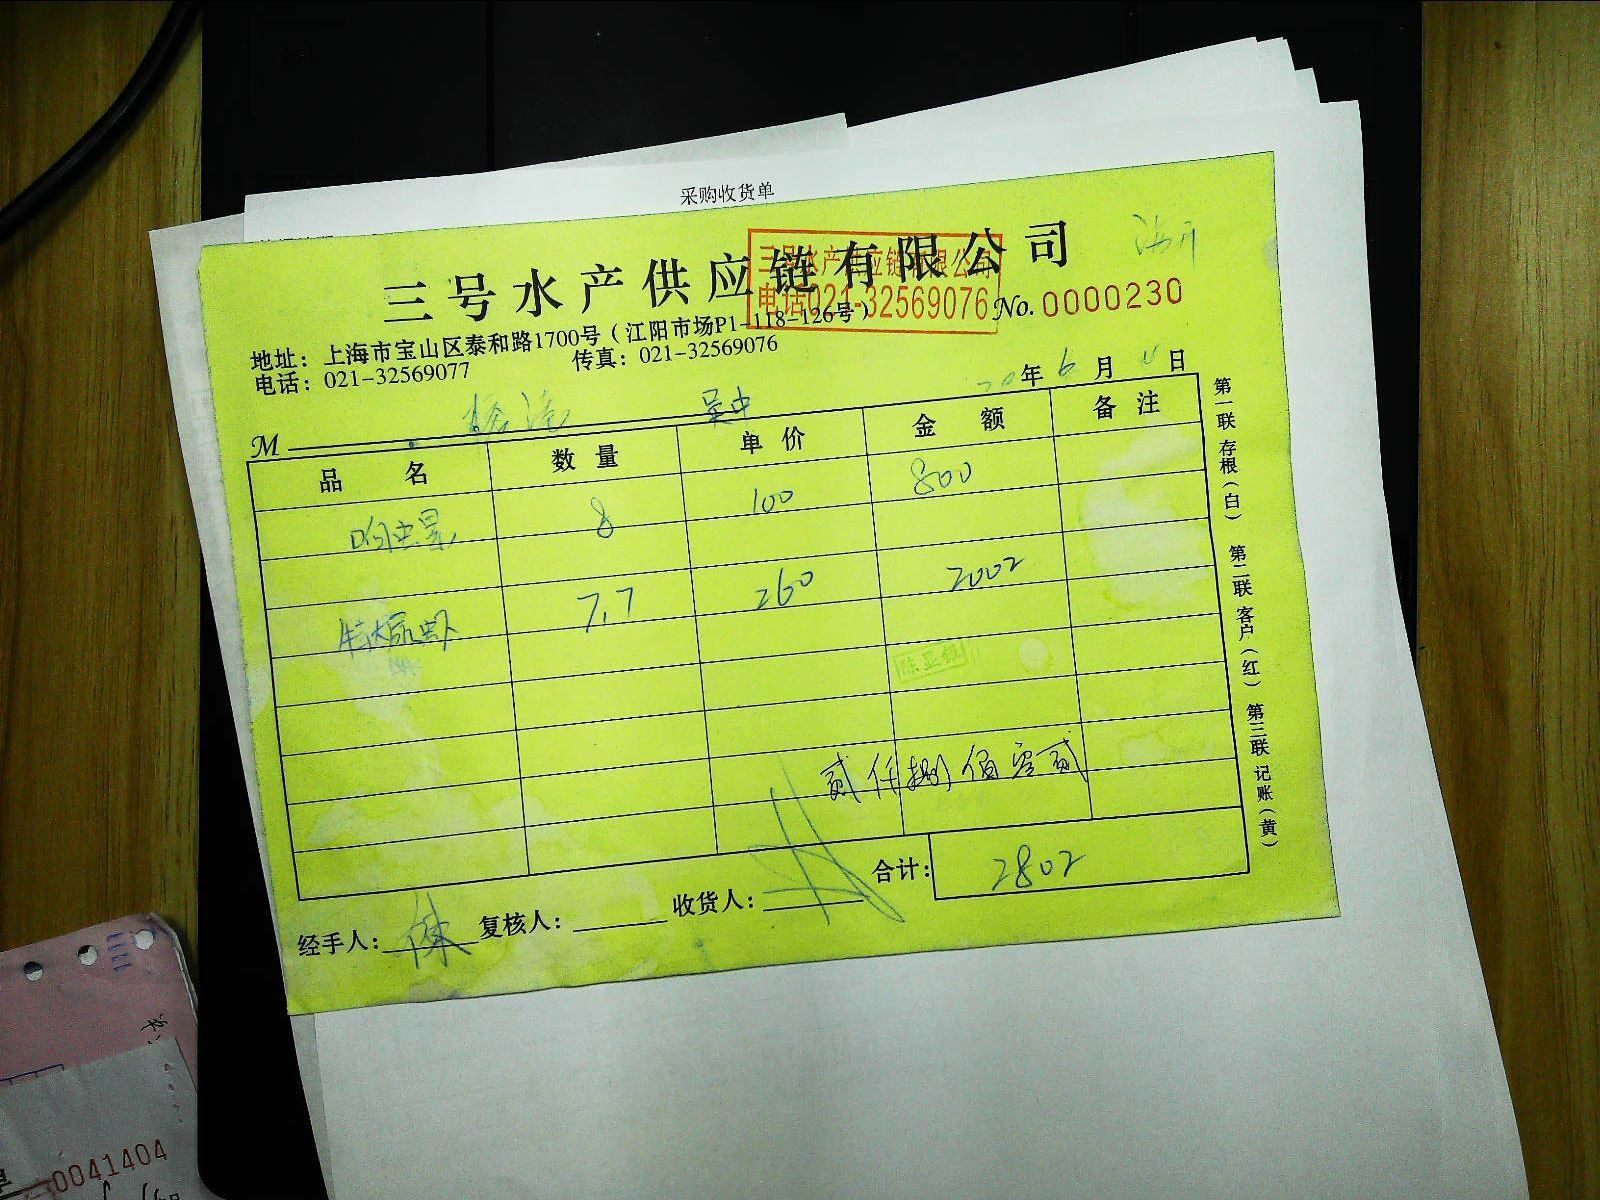 采购收货单
三号水产供应链有限公司
三号水产供应链有限公司
电话021-32569076
No. 0000230
地址：上海市宝山区泰和路1700号（江阳市场P1-118-126号）
电话：021-32569077 传真：021-32569076
20年6月日
M 吴中
品名 数量 单价 金额 备注
8 100 800
7.7 260 2002
贰仟捌佰零贰
合计： 2802
经手人： 陈 复核人： 收货人：
第一联 存根（白） 第二联 客户（红） 第三联 记账（黄）
0041404